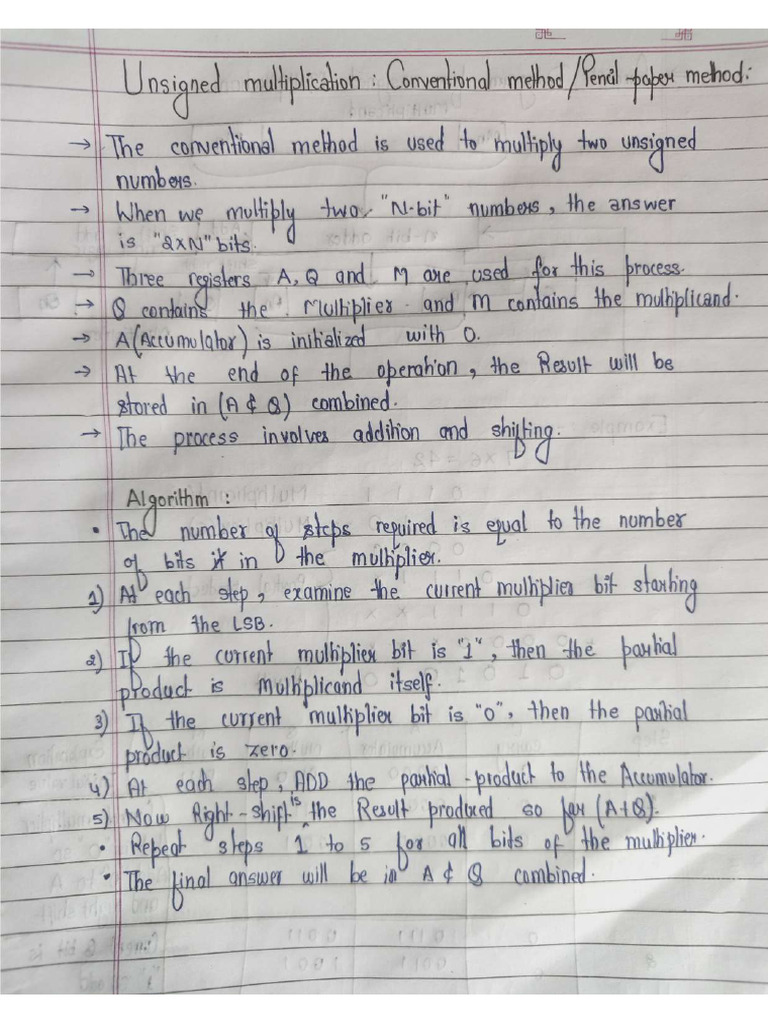 Unsigned multiplication : Conventional method / Pencil-paper method :
→ The conventional method is used to multiply two unsigned
numbers.
→ When we multiply two "N-bit" numbers, the answer
is "2×N" bits.
→ Three registers A, Q and M are used for this process.
→ Q contains the Multiplier and M contains the multiplicand.
→ A (Accumulator) is initialized with 0.
→ At the end of the operation, the Result will be
stored in (A & Q) combined.
→ The process involves addition and shifting.
Algorithm :
• The number of steps required is equal to the number
of bits in the multiplier.
1) At each step, examine the current multiplier bit starting
from the LSB.
2) If the current multiplier bit is "1", then the partial
product is Multiplicand itself.
3) If the current multiplier bit is "0", then the partial
product is zero.
4) At each step, ADD the partial-product to the Accumulator.
5) Now Right-shift is the Result produced so far (A+Q).
• Repeat steps 1 to 5 for all bits of the multiplier.
• The final answer will be in A & Q combined.